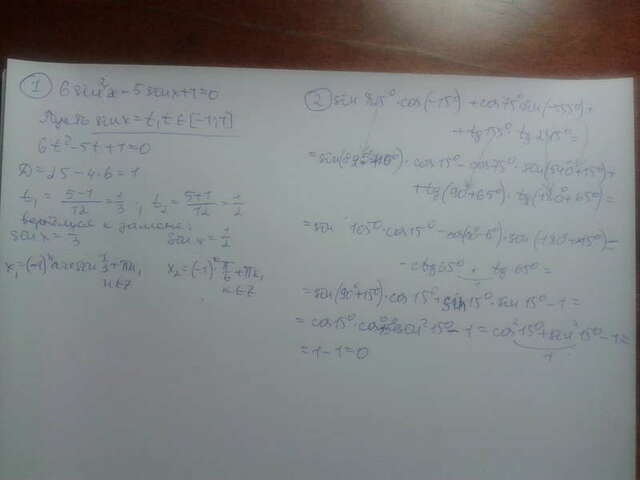 ① 6sin²x - 5sinx + 1 = 0
Пусть sinx = t, t ∈ [-1; 1]
6t² - 5t + 1 = 0
D = 25 - 4·6 = 1
t₁ = (5-1)/12 = 1/3; t₂ = (5+1)/12 = 1/2
вернёмся к замене:
sin x = 1/3 sin x = 1/2
x₁ = (-1)ⁿ arcsin 1/3 + πn, n ∈ Z x₂ = (-1)ᵏ π/6 + πk, k ∈ Z
② sin · cos(-15°) + cos75° sin(-555°) +
+ tg155° · tg245° =
= · cos15° - cos75° · sin(540°+15°) +
+ tg(90°+65°) · tg(180°+65°) =
= sin 105° · cos15° - · sin(180°+15°) -
- ctg65° · tg65° =
= sin(90°+15°) · cos15° + sin15° · sin15° - 1 =
= cos15° · sin²15° - 1 = cos²15° + sin²15° - 1 =
1
= 1 - 1 = 0